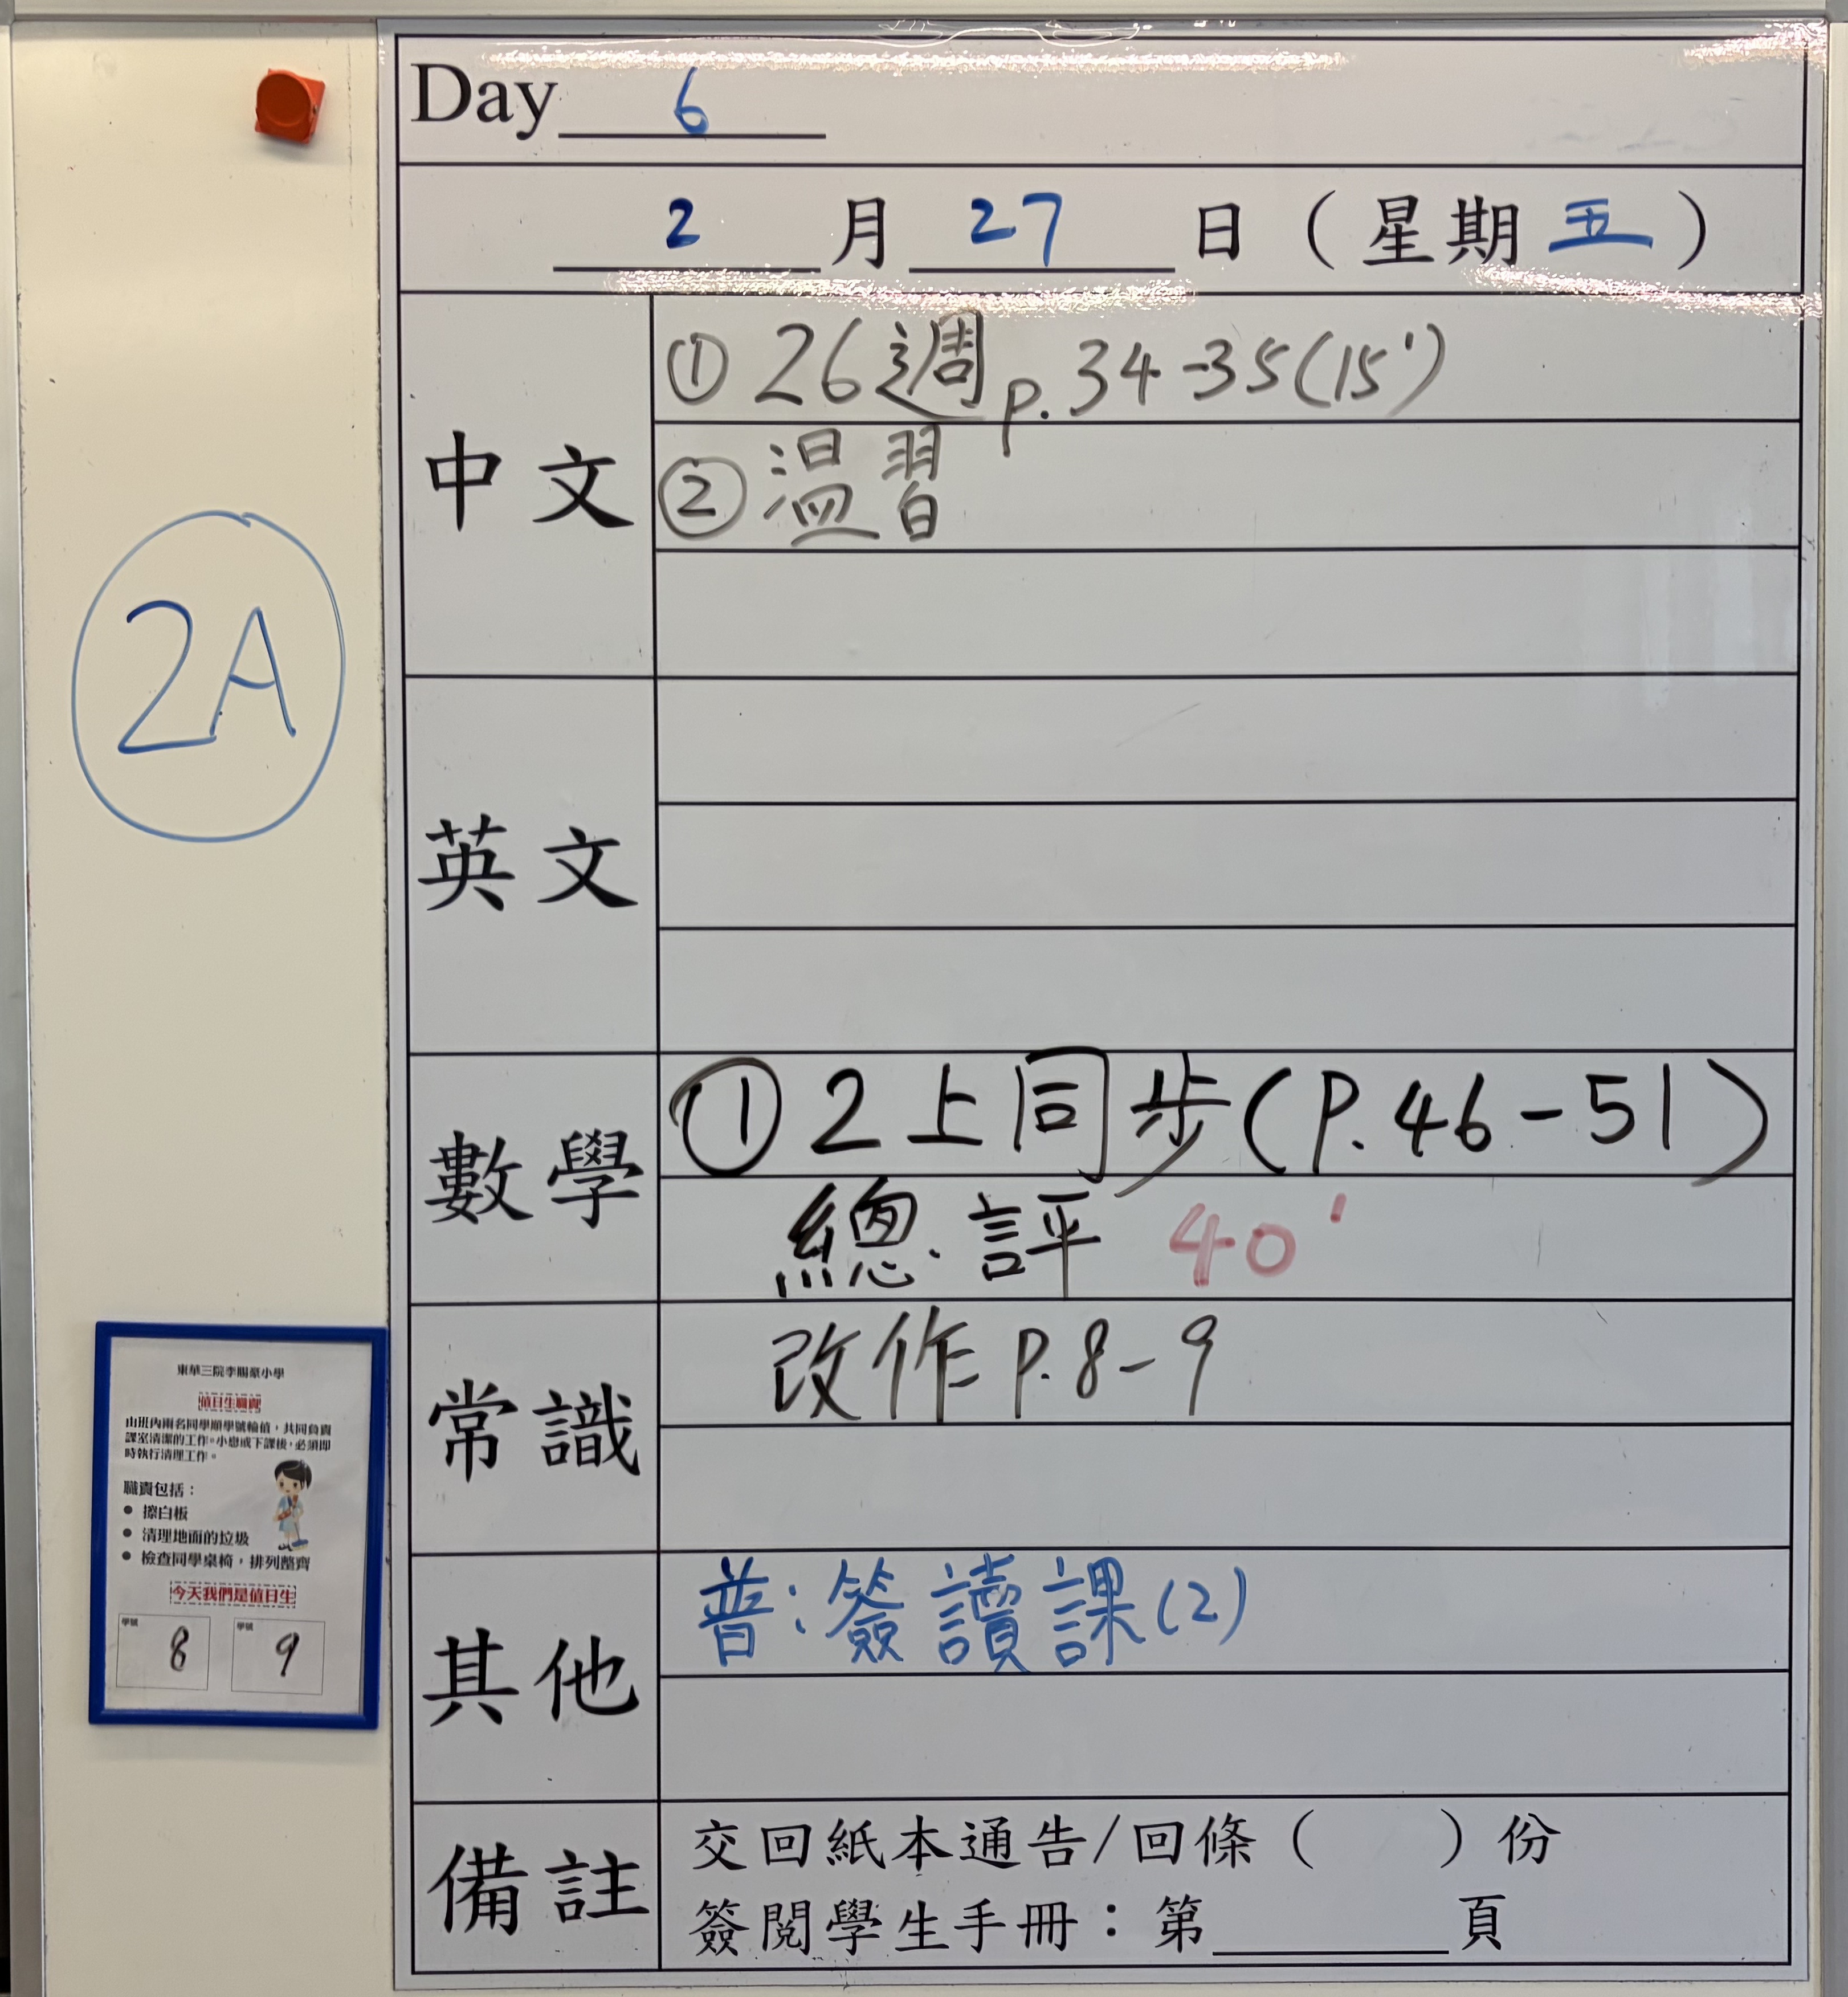 Day 6
2 月 27 日（星期五）
中文
① 26週 p.34-35(15')
② 溫習
英文
數學
① 2上同步(P.46-51)
總評 40'
常識
改作 P.8-9
其他
普:簽讀課(2)
備註
交回紙本通告/回條（ ）份
簽閱學生手冊：第______頁
2A
東華三院李賜豪小學
值日生職責
由班內兩名同學順學號輪值，共同負責
課室清潔的工作。小息或下課後，必須即
時執行清理工作。
職責包括：
● 擦白板
● 清理地面的垃圾
● 檢查同學桌椅，排列整齊
今天我們是值日生
學號 8 學號 9